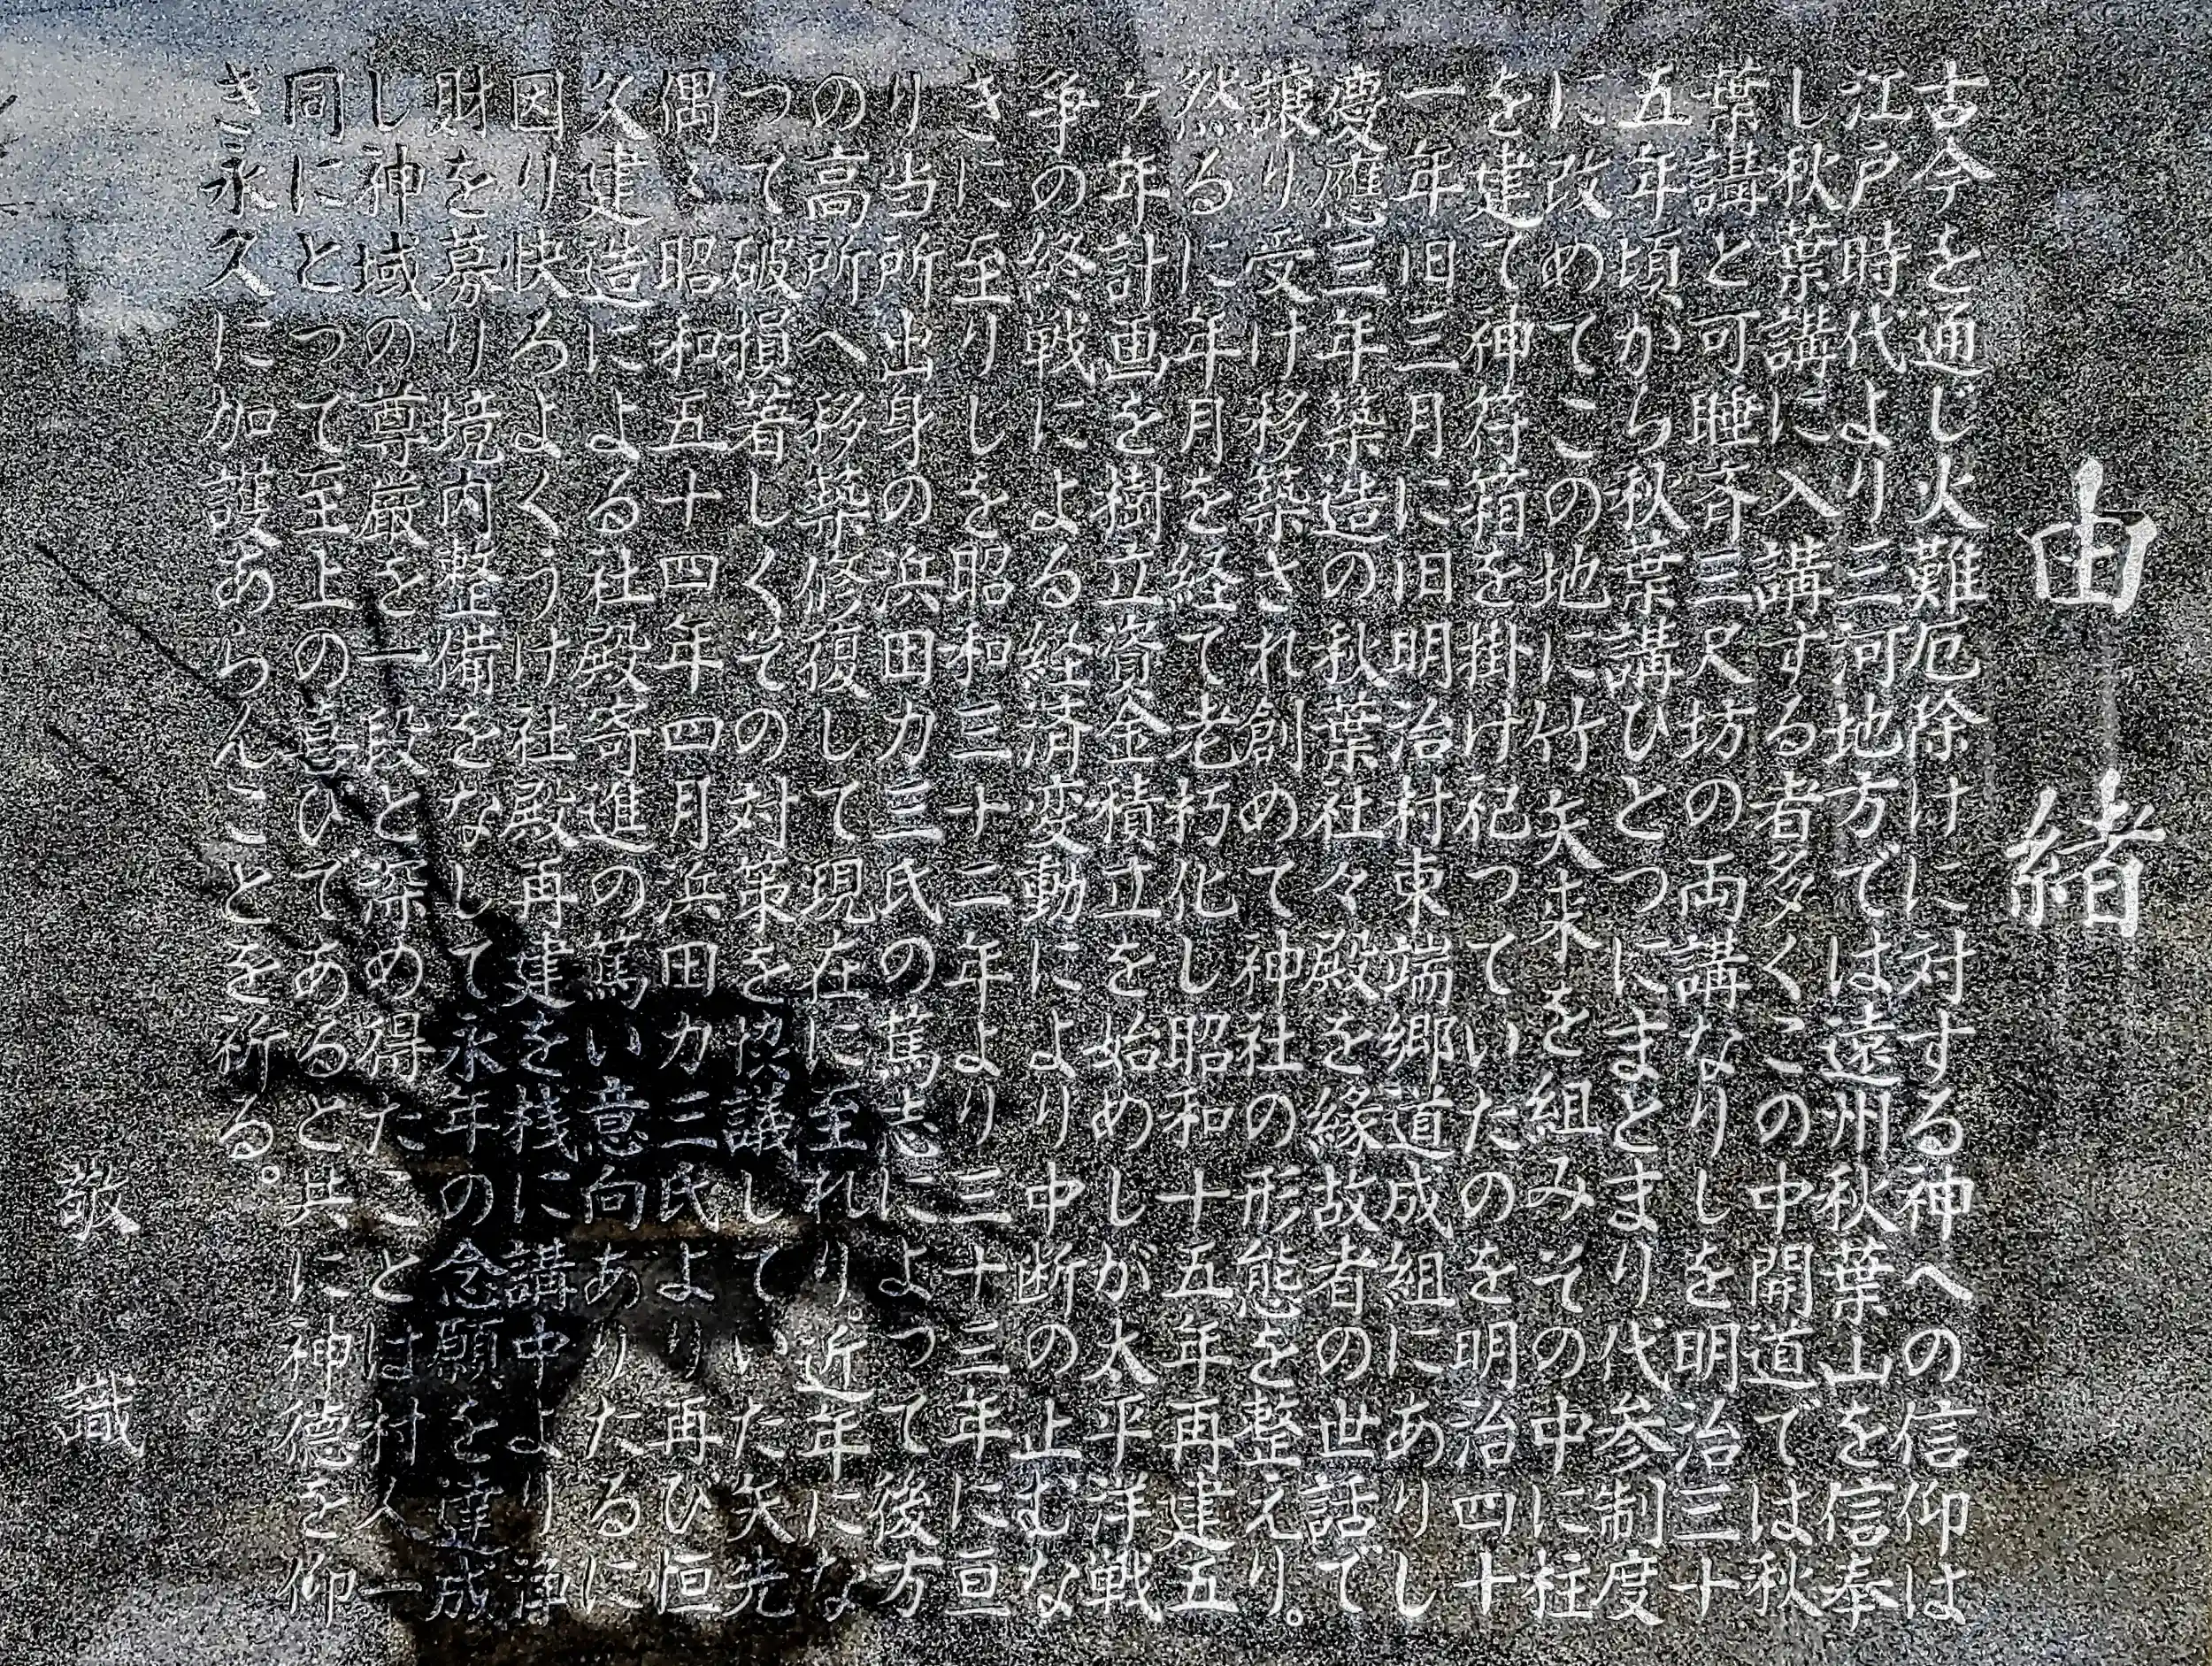 由緒
古今を通じ火難厄除けに対する神への信仰は
江戸時代より三河地方では遠州秋葉山を信奉
し秋葉講に入講する者多くこの中開道では秋
葉講と可睡斉三尺坊の両講なりしを明治三十
五年頃から秋葉講ひとつにまとまり代参制度
に改めてこの地に竹矢来を組みその中に柱
を建て神符箱を掛け祀つていたのを明治四十
一年旧三月に旧明治村東端郷道成組にありし
慶應三年築造の秋葉社々殿を縁故者の世話で
譲り受け移築され創めて神社の形態を整えり。
然るに年月を経て老朽化し昭和十五年再建五
ヶ年計画を樹立資金積立を始めしが太平洋戦
争の終戦による経済変動により中断の止むな
きに至りしを昭和三十二年より三十三年に亘
り当所出身の浜田力三氏の篤志によつて後方
の高所へ移築修復して現在に至れり。近年にな
つて破損著しくその対策を協議していた矢先
偶々昭和五十四年四月浜田力三氏より再び恒
久建造による社殿寄進の篤い意向ありたるに
因り快ろよくうけ社殿再建を機に講中より浄
財を募り境内整備をなして永年の念願を達成
し神域の尊厳を一段と深め得たことは村人一
同にとつて至上の喜びであると共に神徳を仰
ぎ永久に加護あらんことを祈る。
敬識